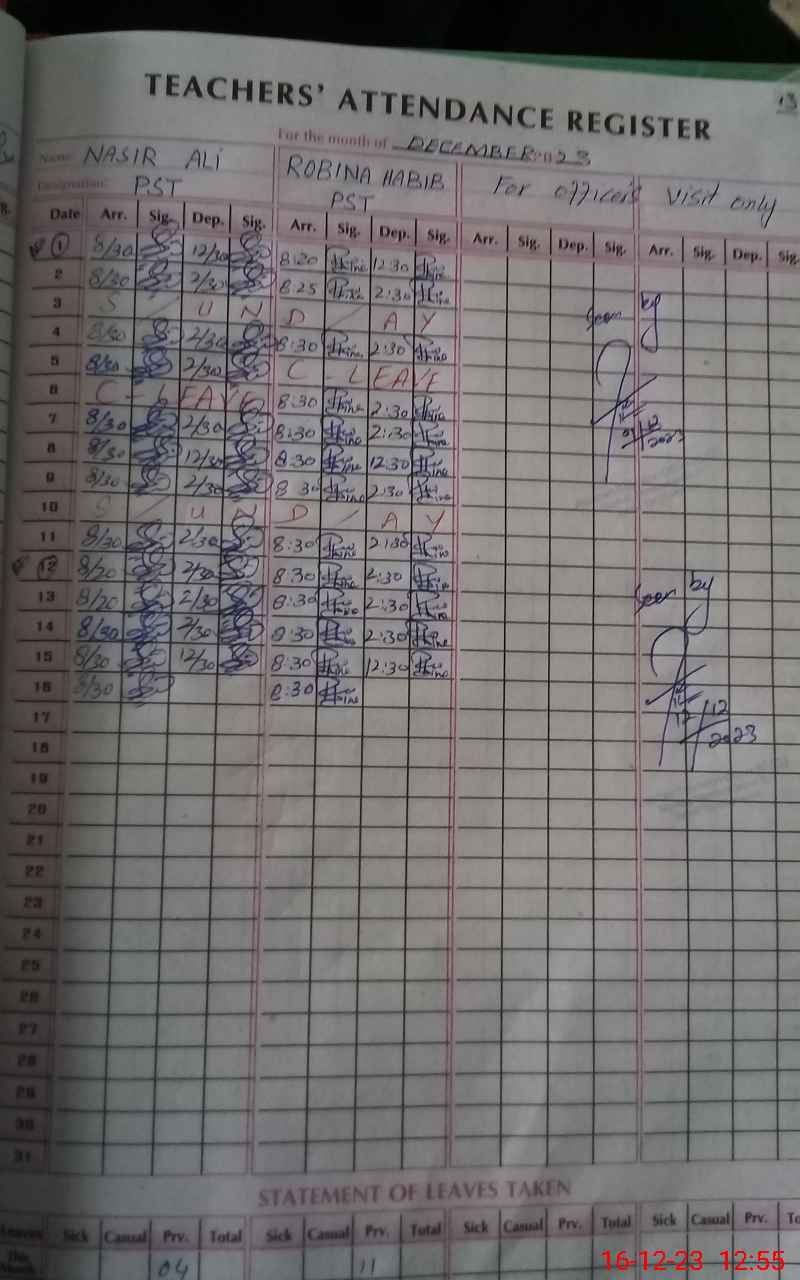 13
TEACHERS' ATTENDANCE REGISTER
For the month of DECEMBER 2023
Name: NASIR ALI ROBINA HABIB For officers visit only
Designation: PST PST
Date Arr. Sig. Dep. Sig. Arr. Sig. Dep. Sig. Arr. Sig. Dep. Sig. Arr. Sig. Dep. Sig.
1 8/30 12/30 8:20 12:30
2 8/30 2/30 8:25 2:30
3 S / U N D / A Y Seen by
4 8/30 2/30 8:30 2:30
5 8/30 2/30 C - LEAVE
6 C - LEAVE 8:30 2:30
7 8/30 2/30 8:30 2:30
8 8/30 12/30 8:30 12:30
9 8/30 2/30 8:30 2:30
10 S / U N D / A Y
11 8/30 2/30 8:30 2:30
12 8/20 2/30 8:30 2:30
13 8/20 2/30 8:30 2:30 Seen by
14 8/30 2/30 8:30 2:30
15 8/30 12/30 8:30 12:30
16 8/30 8:30
17 12/12
18 2023
19
20
21
22
23
24
25
26
27
28
29
30
31
STATEMENT OF LEAVES TAKEN
Leaves Sick Casual Prv. Total Sick Casual Prv. Total Sick Casual Prv. Total Sick Casual Prv. To
This Month 04 11
16-12-23 12:55